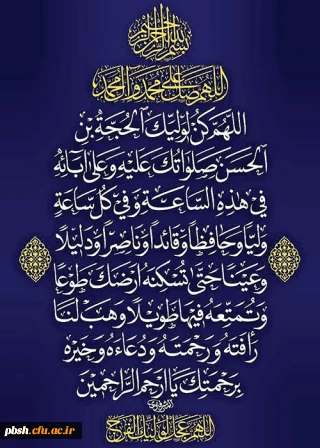 بسم الله الرحمن الرحيم
اللهم صل على محمد وآل محمد
اللهم كن لوليك الحجة بن
الحسن صلواتك عليه وعلى آبائه
في هذه الساعة وفي كل ساعة
وليا وحافظا وقائدا وناصرا ودليلا
وعينا حتى تسكنه أرضك طوعا
وتمتعه فيها طويلا وهب لنا
رأفته ورحمته ودعاءه وخيره
برحمتك يا أرحم الراحمين
اللهم عجل لوليك الفرج
pbsh.cfu.ac.ir